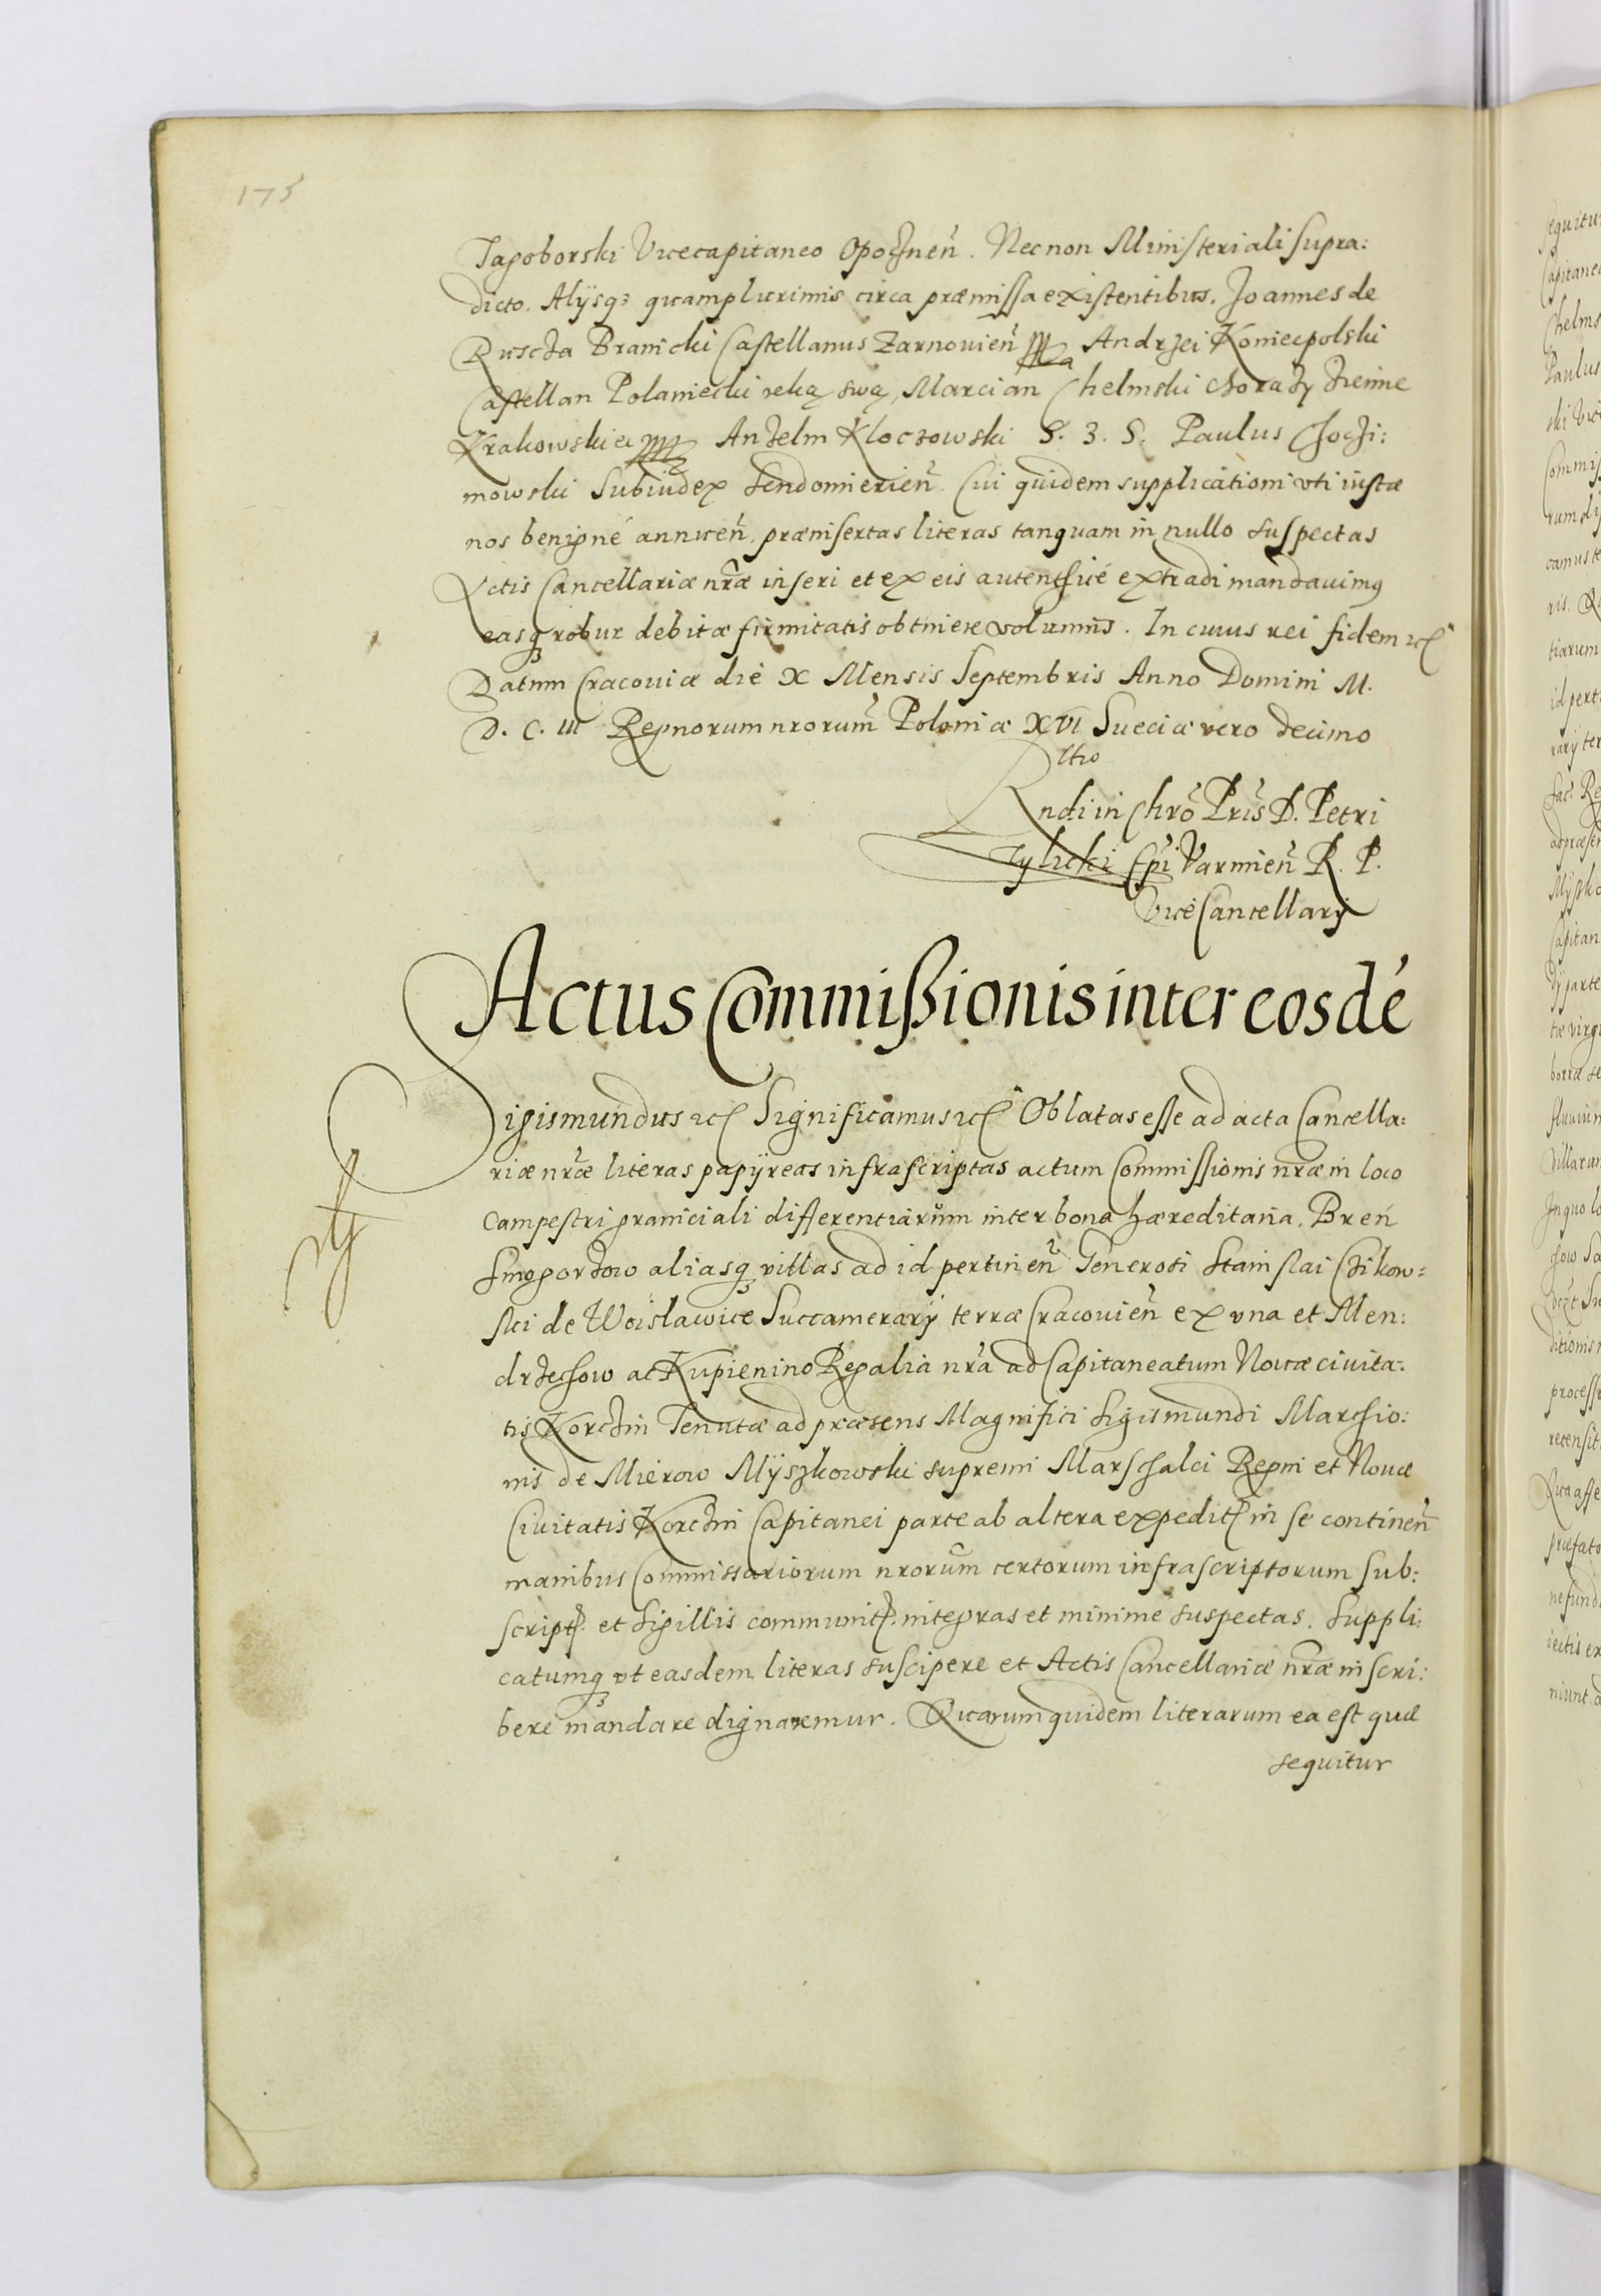 175
Japoborski Vicecapitaneo Opocznen̄. Nec non Ministeriali supra:
dicto. Alÿsqȝ quamplurimis circa præmissa existentibus. Joannes de
Ruscza Branicki Castellanus Zarnouien̄ mp Andrzei Koniecpolski
Castellan Polaniecki ręką swą, Marcian Chelmski chorązy ziemie
Krakowskiei mp Anzelm Kloczowski S. 3. S. Paulus Choczi:
mowski Subiudex Sendomierien̄. Cui quidem supplicationi vti iustæ
nos benigné annuen̄. præinsertas literas tanquam in nullo suspectas
Actis Cancellariæ nr̄æ inseri et ex eis autenthicé extradi mandauimꝯ
easqȝ robur debitæ firmitatis obtinere volumus. In cuius rei fidem ꝛc
Datum Cracouiæ die X Mensis Septembris Anno Domini M.
D. C. III Regnorum nrorum̄ Poloniæ XVI Sueciæ vero decimo
ltio
Rndi in Chrō Pr̄is D. Petri
Tylicki Ep̄i Varmien̄ R. P.
Vice Cancellarÿ
Actus Commißionis inter eosdé
Sigismundus ꝛc Significamus ꝛc Oblatas esse ad acta Cancella:
riæ nr̄æ literas papÿreas infrascriptas actum Commissionis nr̄æ in loco
campestri graniciali differentiarum inter bona hæreditaria. Breń
Smogorzow aliasqȝ villas ad id pertinen̄ Generosi Stanislai Czikow=
ski de Woislawice Succamerarÿ terræ Cracouien̄ ex vna et Men:
drzechow ac Kupienino Regalia nr̄a ad Capitaneatum Nouæ ciuita:
tis Korczin Tenutæ ad præsens Magnifici Sigismundi Marchio:
nis de Mirow Mÿszkowski supremi Marschalci Regni et Nouæ
Ciuitatis Korczin Capitanei parte ab altera expedit. in se continen̄
manibus Commissariorum nrorum̄ certorum infrascriptorum sub:
script. et Sigillis communit. integras et minime suspectas. Suppli:
catumqȝ vt easdem literas suscipere et Actis Cancellariæ nr̄æ inscri:
bere mandare dignaremur. Quarum quidem literarum ea est quæ
sequitur